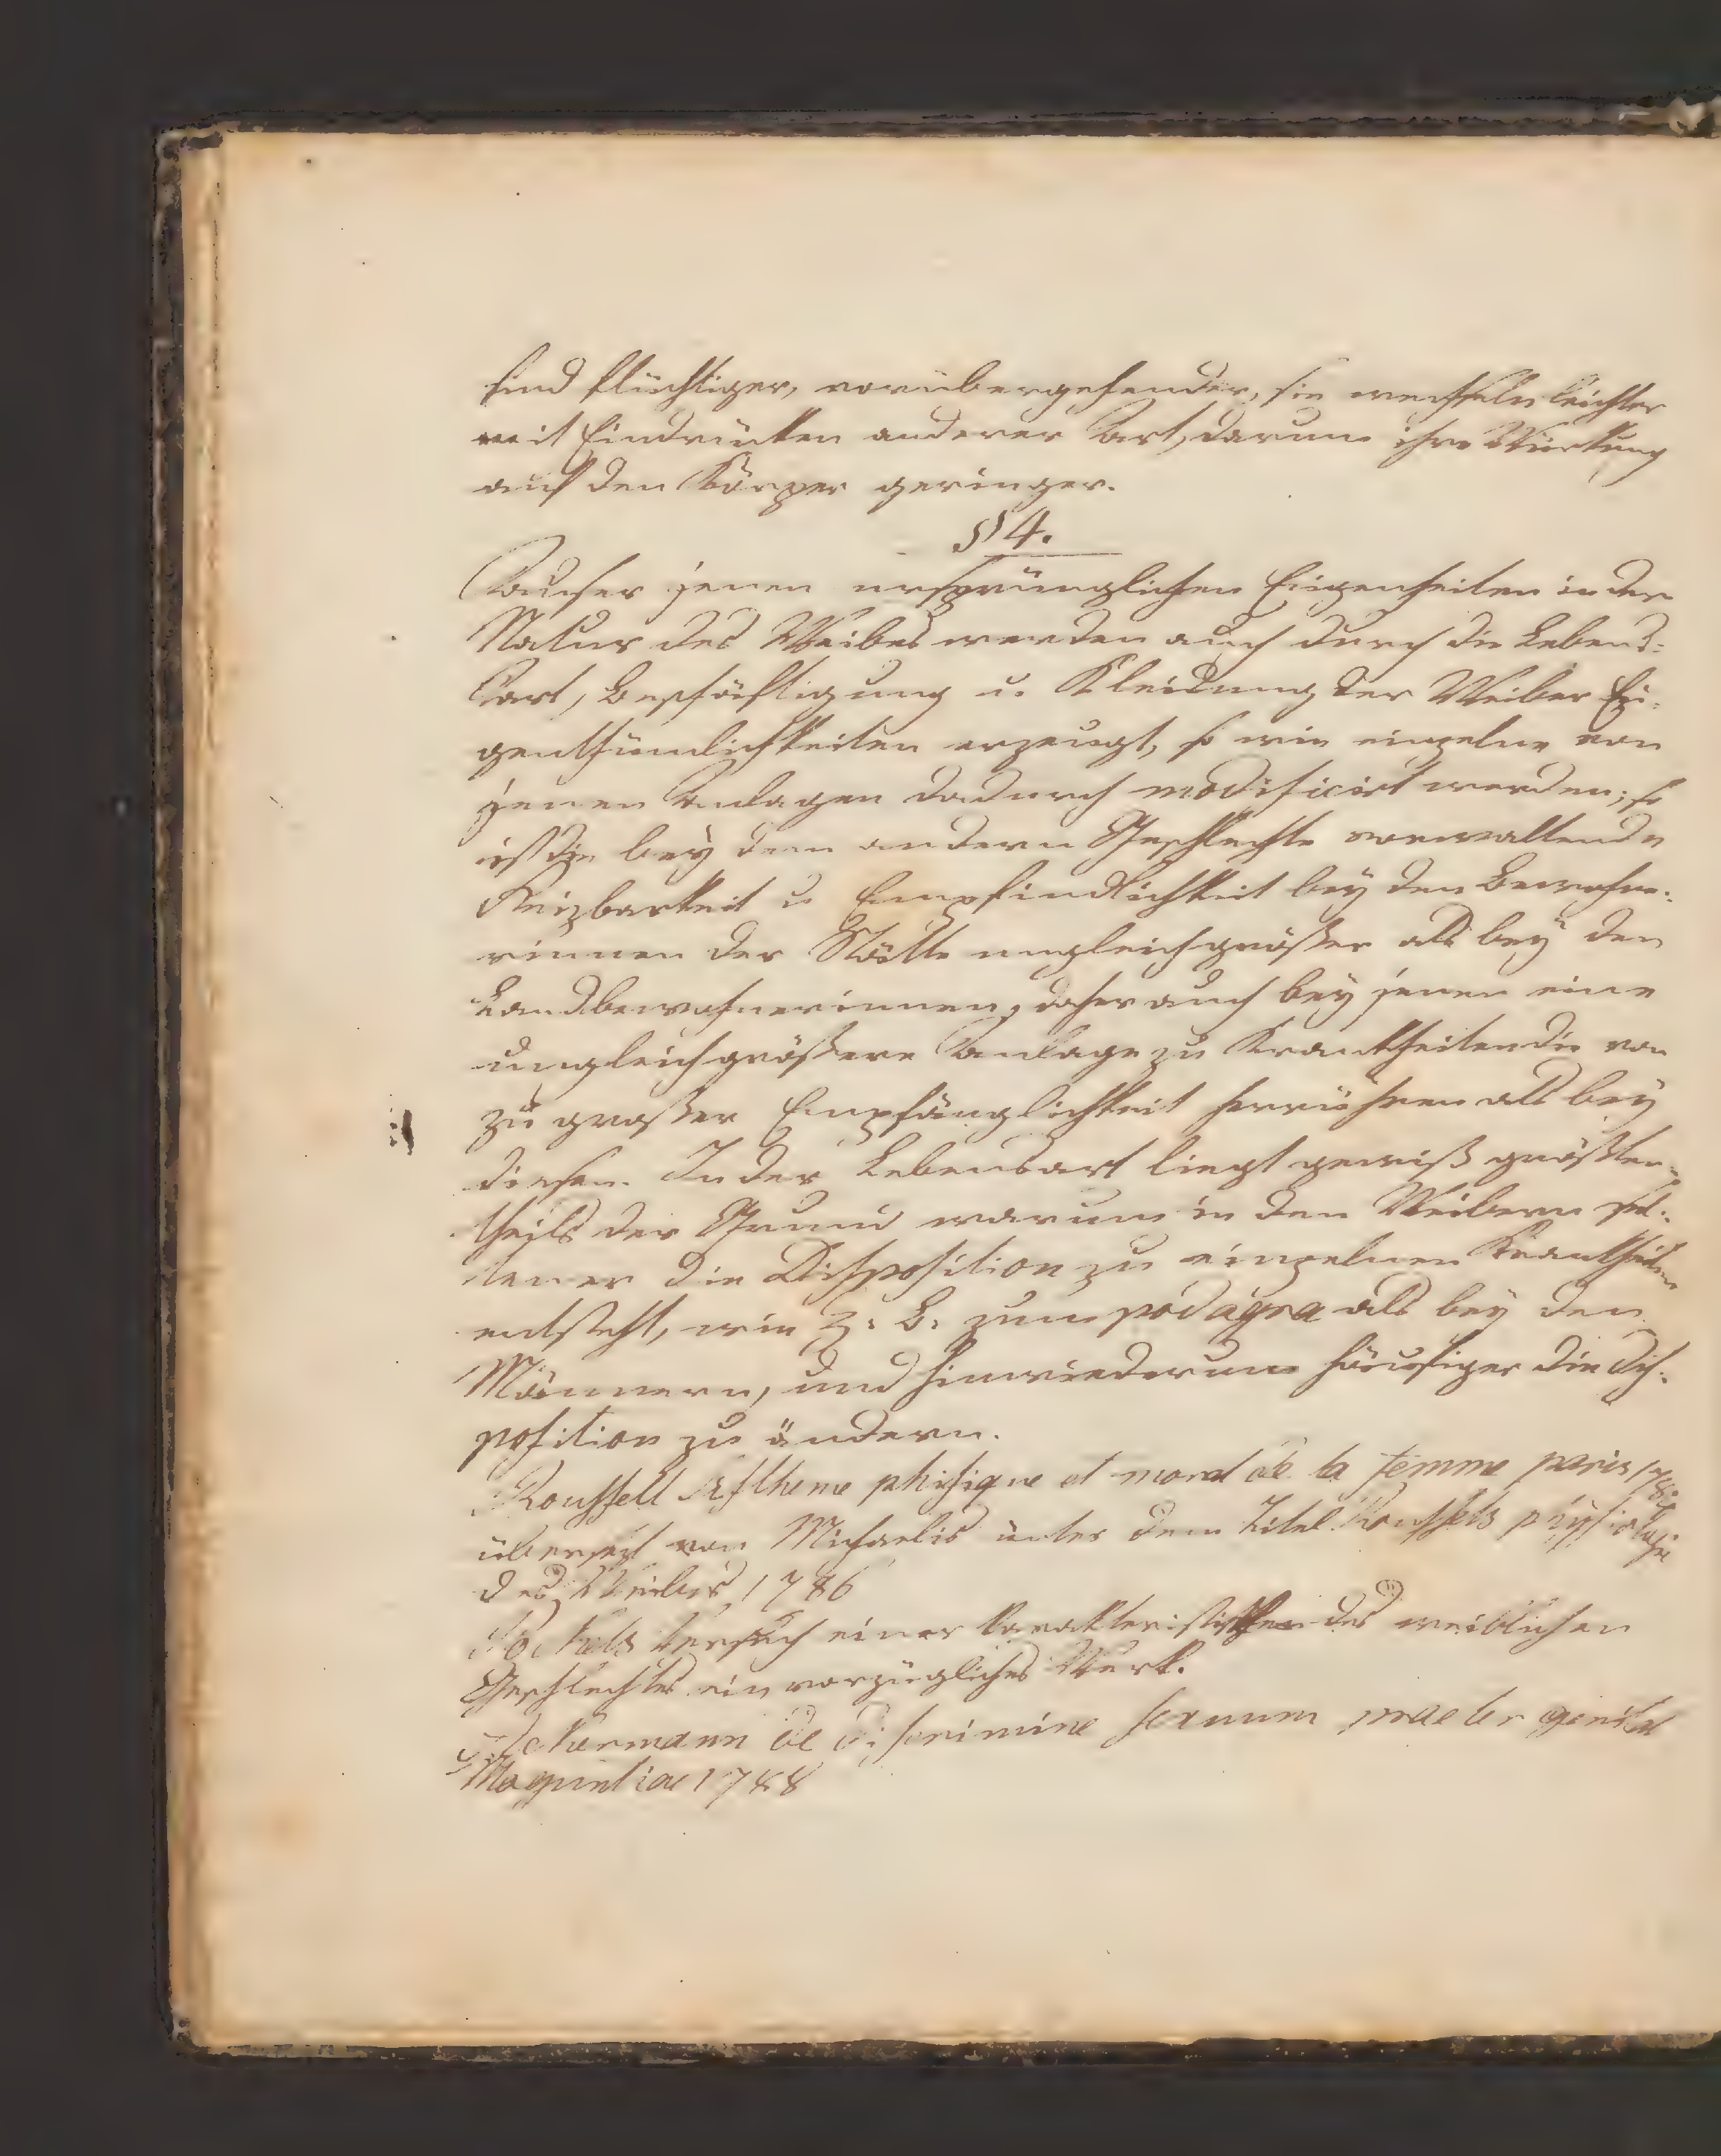 sind flüchtiger, vorübergehender, sie wechseln leichter
mit Eindrücken anderer Art, darum ihre Würkung
auf den Körper geringer.
§ 4.
Auser jenen ursprünglichen Eigenheiten in der
Natur des Weibes werden auch durch die Lebens-
Art, Beschäftigung u. Kleidung der Weiber Ei-
genthümlichkeiten erzeugt, so wie einzelne von
jenen Anlagen dadurch modificirt werden; so
ist die bey dem andern Geschlechte vorwaltende
Reizbarkeit u Empfindlichkeit bey den Bewohne-
rinnen der Städte ungleich größer als bey den
Landbewohnerinnen, daher auch bey jenen eine
ungleich größere Anlage zu Krankheiten die von
zu großer Empfänglichkeit herrühren als bey
diesen. In der Lebensart liegt gewiß größten-
theils der Grund warum in den Weibern sel-
tener die Disposition zu einzelnen Krankheiten
entsteht, wie z. B. zum podagra als bey den
Männern, und hinwiederum häufiger die Dis-
position zu andern.
Roussell Systheme phisique et moral de la femme paris
übersezt von Michaelis unter dem Titel Roussels physiologie
des Weibes 1786
Pockels Versuch einer Karakteristik des weiblichen
Geschlechtes ein vorzügliches Werk.
Ackermann de discrimine sexuum praeter genital
Moguntiae 1788